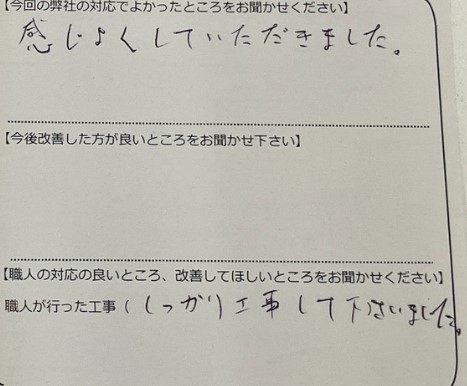 【今回の弊社の対応でよかったところをお聞かせください】
感じよくしていただきました。
【今後改善した方が良いところをお聞かせ下さい】
【職人の対応の良いところ、改善してほしいところをお聞かせください】
職人が行った工事（しっかり工事して下さいました。